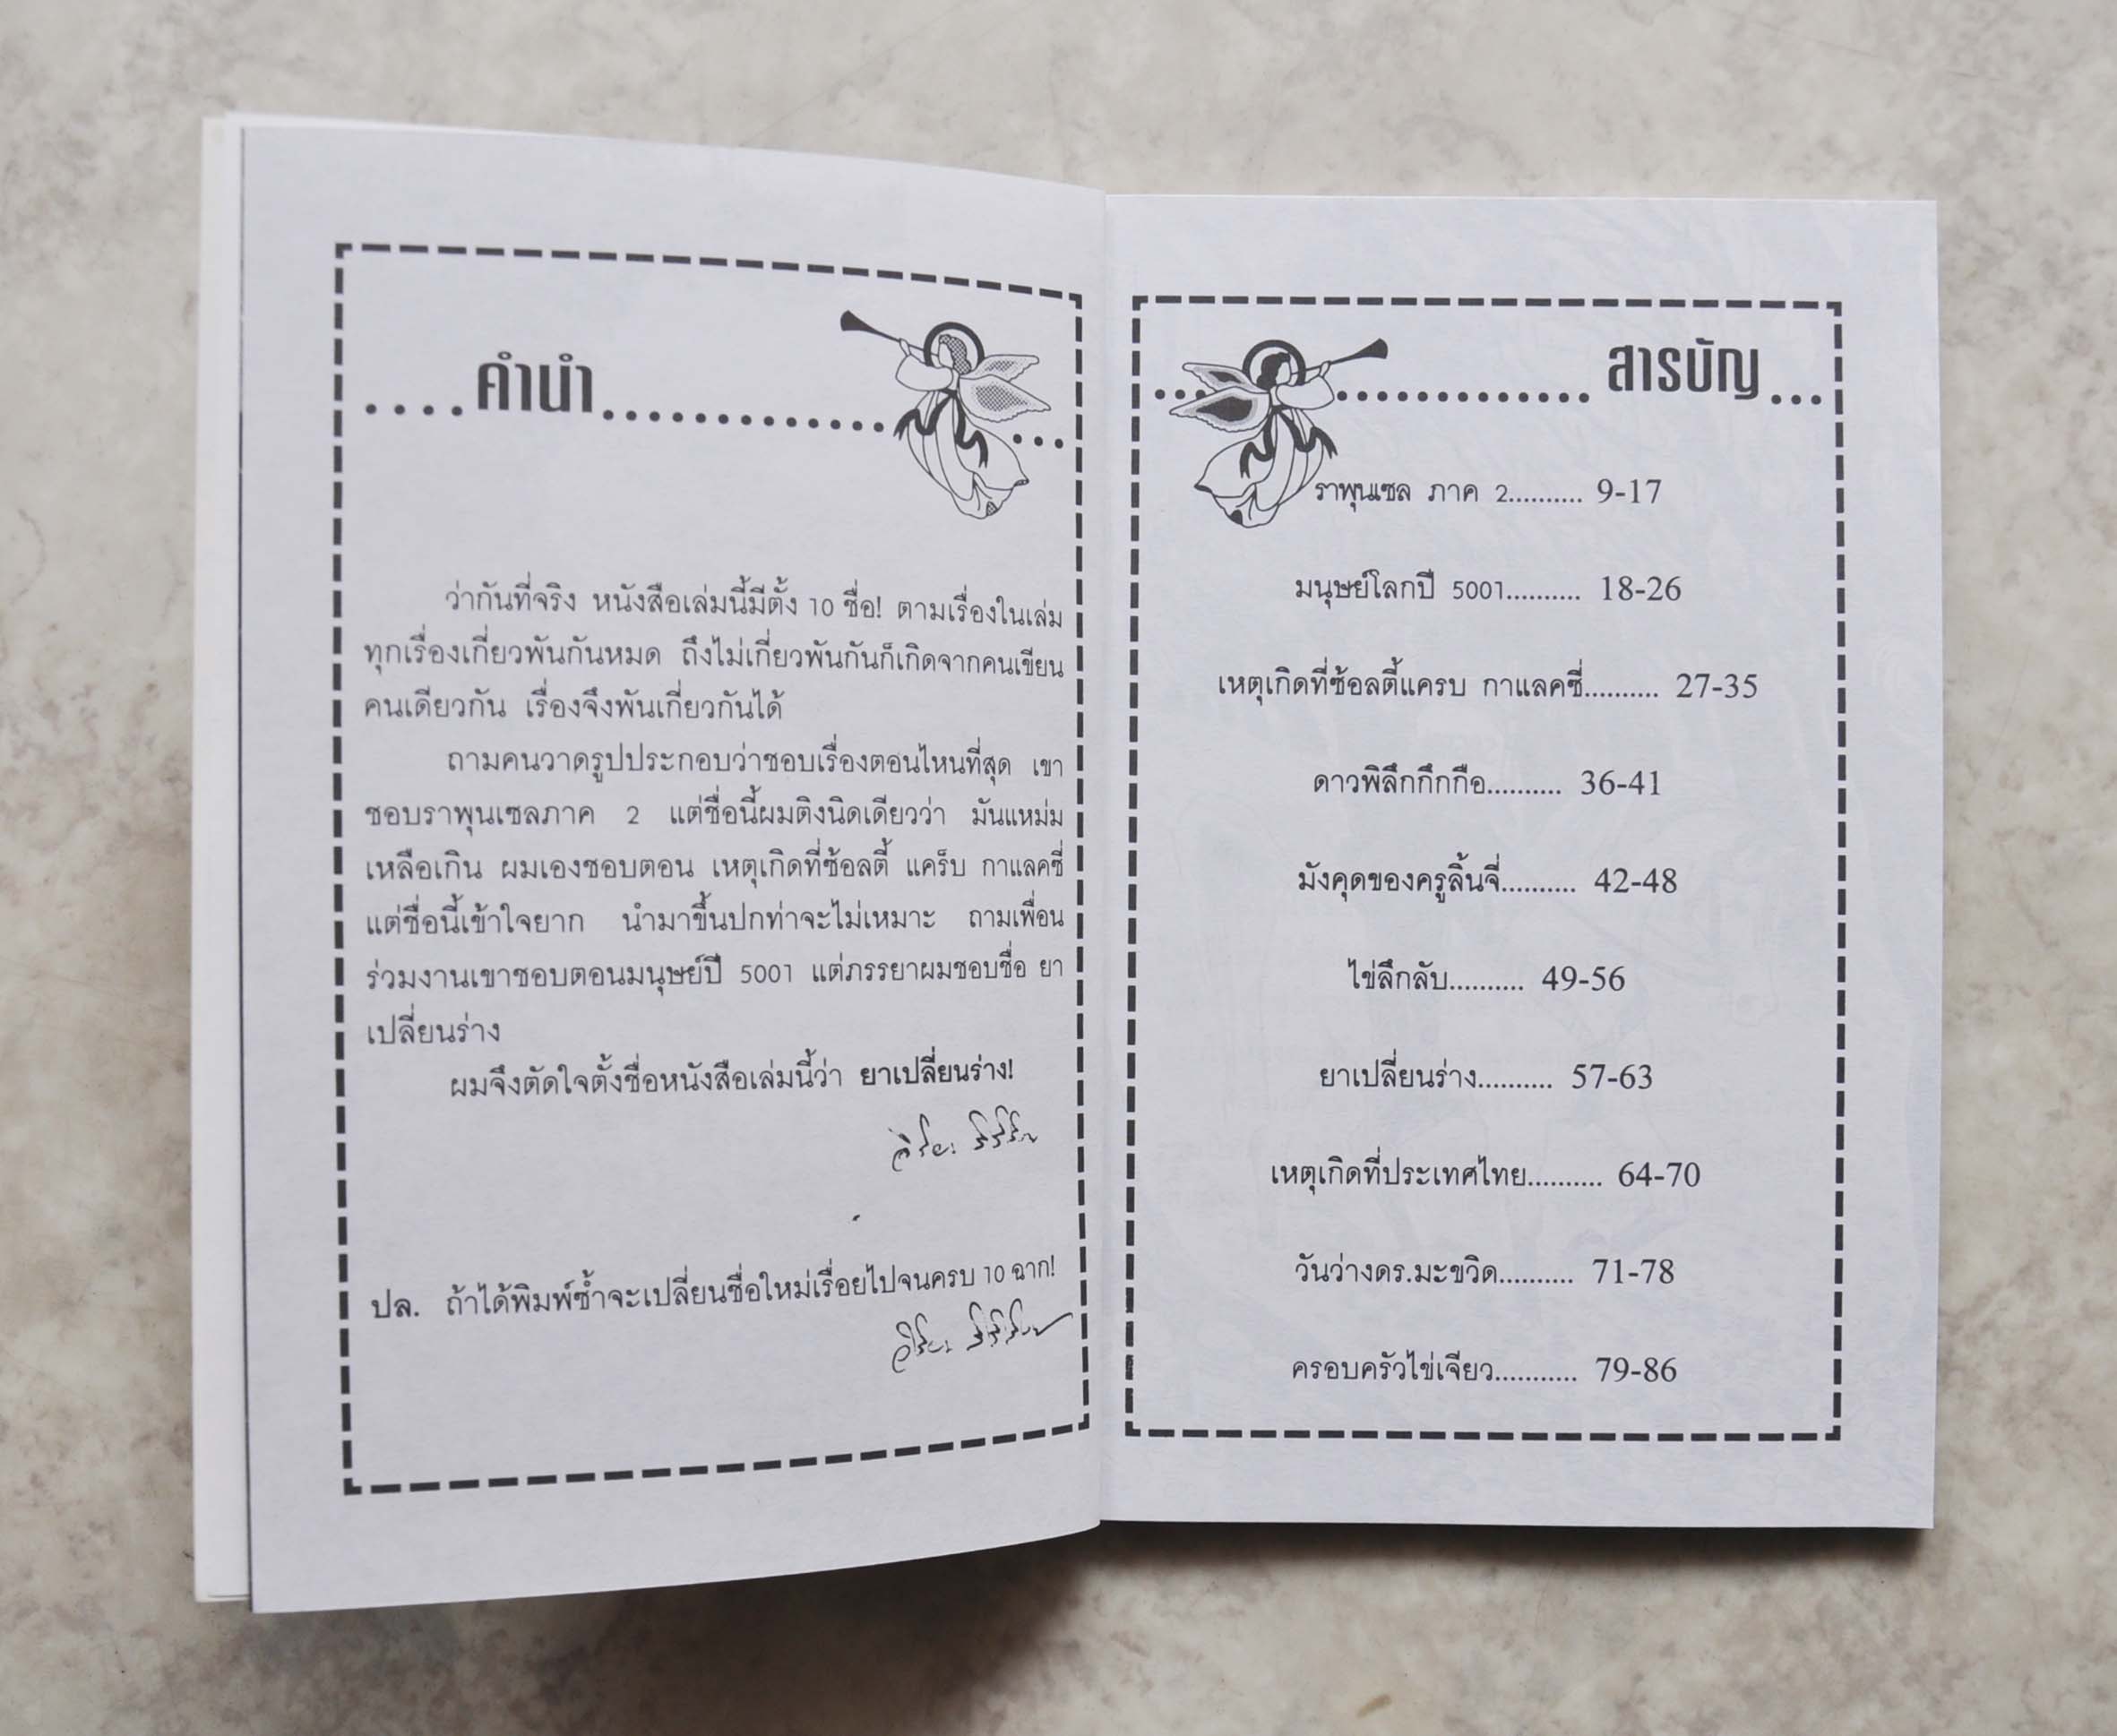 คำนำ
ว่ากันที่จริง หนังสือเล่มนี้มีตั้ง 10 ชื่อ! ตามเรื่องในเล่ม
ทุกเรื่องเกี่ยวพันกันหมด ถึงไม่เกี่ยวพันกันก็เกิดจากคนเขียน
คนเดียวกัน เรื่องจึงพันเกี่ยวกันได้
ถามคนวาดรูปประกอบว่าชอบเรื่องตอนไหนที่สุด เขา
ชอบราพุนเซลภาค 2 แต่ชื่อนี้ผมติงนิดเดียวว่า มันแหม่ม
เหลือเกิน ผมเองชอบตอน เหตุเกิดที่ซ้อลตี้ แคร็บ กาแลคซี่
แต่ชื่อนี้เข้าใจยาก นำมาขึ้นปกท่าจะไม่เหมาะ ถามเพื่อน
ร่วมงานเขาชอบตอนมนุษย์ปี 5001 แต่ภรรยาผมชอบชื่อ ยา
เปลี่ยนร่าง
ผมจึงตัดใจตั้งชื่อหนังสือเล่มนี้ว่า ยาเปลี่ยนร่าง!
ปล. ถ้าได้พิมพ์ซ้ำจะเปลี่ยนชื่อใหม่เรื่อยไปจนครบ 10 ฉาก!
สารบัญ
ราพุนเซล ภาค 2.......... 9-17
มนุษย์โลกปี 5001.......... 18-26
เหตุเกิดที่ซ้อลตี้แครบ กาแลคซี่.......... 27-35
ดาวพิลึกกึกกือ.......... 36-41
มังคุดของครูลิ้นจี่.......... 42-48
ไข่ลึกลับ.......... 49-56
ยาเปลี่ยนร่าง.......... 57-63
เหตุเกิดที่ประเทศไทย.......... 64-70
วันว่างดร.มะขวิด.......... 71-78
ครอบครัวไข่เจียว........... 79-86